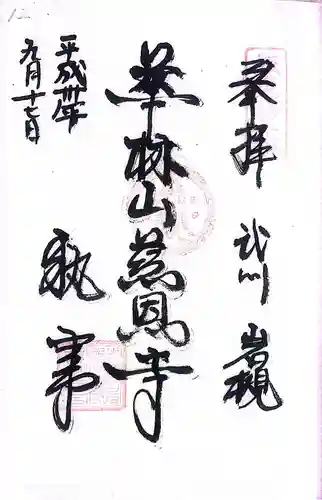 奉拝 武州 岩槻
華林山慈恩寺
執事
平成卅年
九月十七日